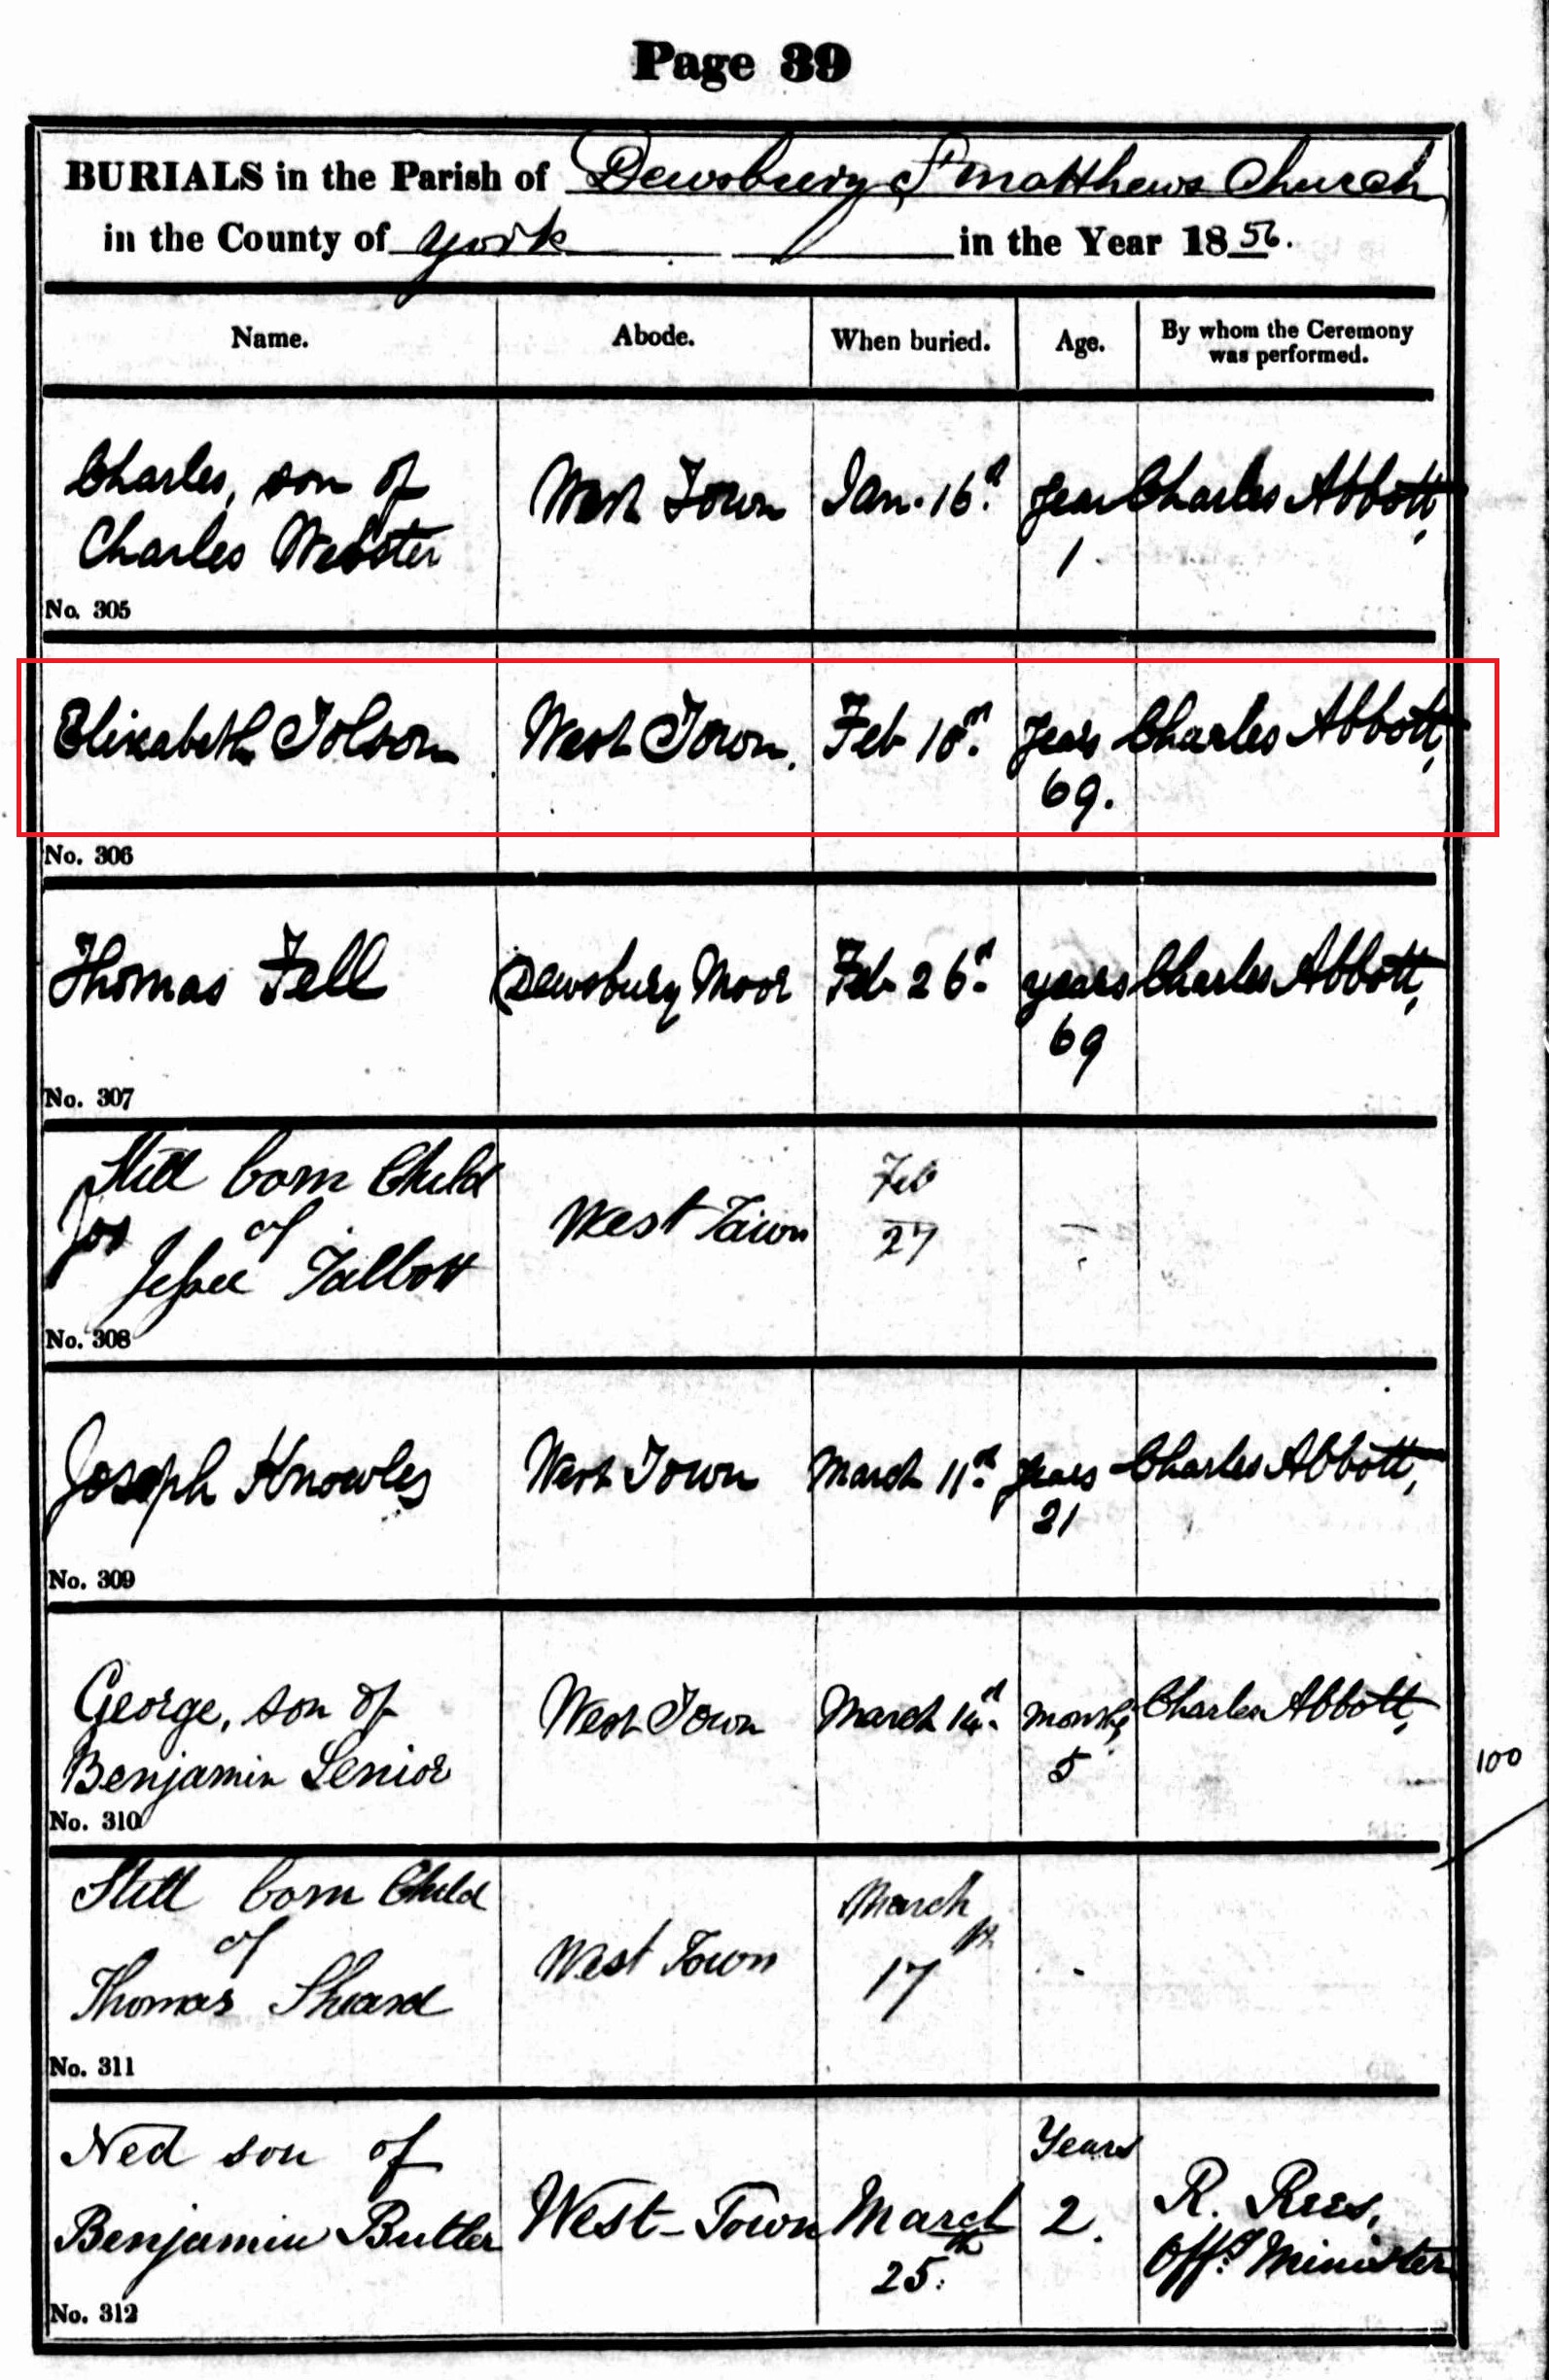 Page 39
BURIALS in the Parish of Dewsbury St Matthews Church
in the County of York in the Year 1856.
Name. Abode. When buried. Age. By whom the Ceremony was performed.
Charles, son of West Town Jan. 16th year Charles Abbott,
Charles Webster 1.
No. 305
Elizabeth Tolson West Town. Feb 10th years Charles Abbott,
69.
No. 306
Thomas Fell Dewsbury Moor Feb 26th years Charles Abbott,
69
No. 307
Still born Child Feb
Jos of West Town 27 -
Jessee Talbott
No. 308
Joseph Knowles West Town March 11th years Charles Abbott,
21
No. 309
George, son of West Town March 14th months Charles Abbott,
Benjamin Senior 5
No. 310
100
Still born Child March
of West Town 17th -
Thomas Sheard
No. 311
Ned son of Years R. Rees,
Benjamin Butler West-Town March 2. Offg. Minister
25th
No. 312